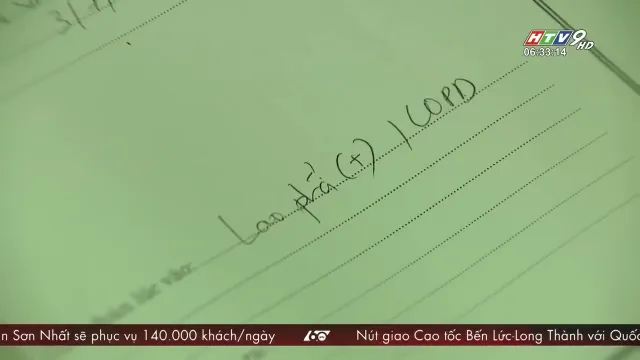 HTV9 HD
06:33:14
Lao phổi (+) / COPD
n Sơn Nhất sẽ phục vụ 140.000 khách/ngày 60 Nút giao Cao tốc Bến Lức-Long Thành với Quốc